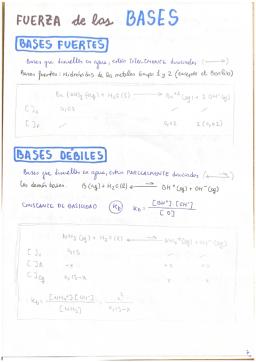 FUERZA de las BASES
BASES FUERTES
Bases que disueltas en agua, están TOTALMENTE disociadas (⟶)
Bases fuertes: Hidróxidos de los metales Grupo 1 y 2 (excepto el Berilio)
(aq) + H₂O (l) ⟶ (aq) + 2 OH⁻(aq)
[ ]₀ 0,02
0,02 2(0,02)
BASES DÉBILES
Bases que disueltas en agua, están PARCIALMENTE disociadas
Las demás bases. B (aq) + H₂O (l) ⟷ BH⁺(aq) + OH⁻(aq)
CONSTANTE DE BASICIDAD Kb Kb = [BH⁺]·[OH⁻] / [B]
NH₃ (aq) + H₂O (l) ⟷ NH₄⁺(aq) + OH⁻(aq)
[ ]₀ 0,15
-x x x
[ ]eq 0,15-x x x
Kb = [NH₄⁺][OH⁻] / [NH₃] = x² / 0,15-x